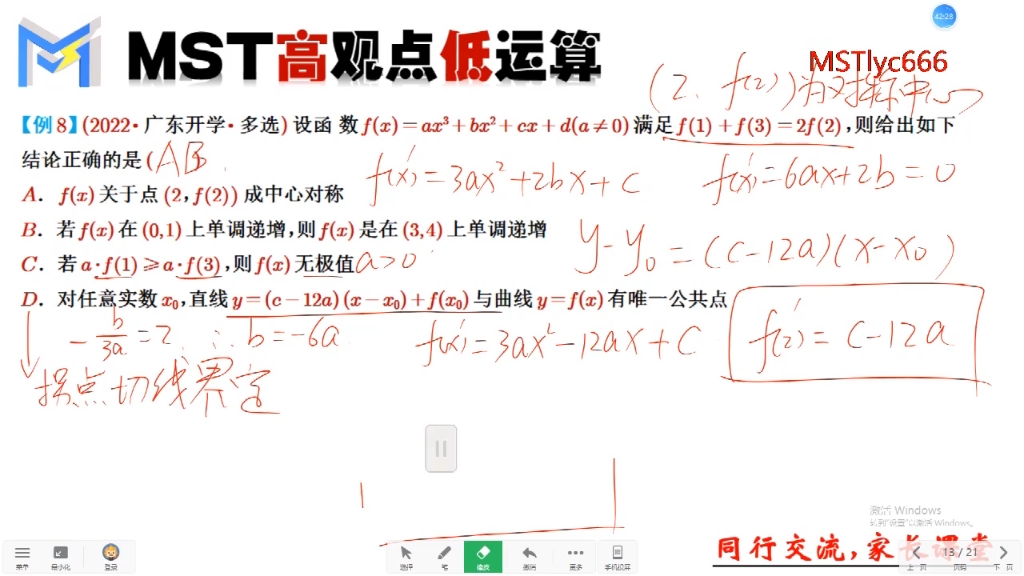 42:28
MST高观点低运算
MSTlyc666
(2, f(2))为对称中心
【例8】(2022·广东开学·多选) 设函 数 f(x)=ax³+bx²+cx+d(a≠0) 满足 f(1)+f(3)=2f(2), 则给出如下
结论正确的是 (AB.
f'(x)=3ax²+2bx+c
f''(x)=6ax+2b=0
A. f(x) 关于点 (2, f(2)) 成中心对称
B. 若 f(x) 在 (0,1) 上单调递增, 则 f(x) 是在 (3,4) 上单调递增
y-y₀=(c-12a)(x-x₀)
C. 若 a·f(1)⩾a·f(3), 则 f(x) 无极值 a>0
D. 对任意实数 x₀, 直线 y=(c-12a)(x-x₀)+f(x₀) 与曲线 y=f(x) 有唯一公共点
-b/3a=2 ∴b=-6a
f'(x)=3ax²-12ax+c
f'(2)=c-12a
拐点切线界定
激活 Windows
转到"设置"以激活 Windows。
同行交流,家长课堂
菜单 最小化 登录 选择 笔 橡皮 撤销 更多 手机投屏 上一页 13 / 21 页码 下一页